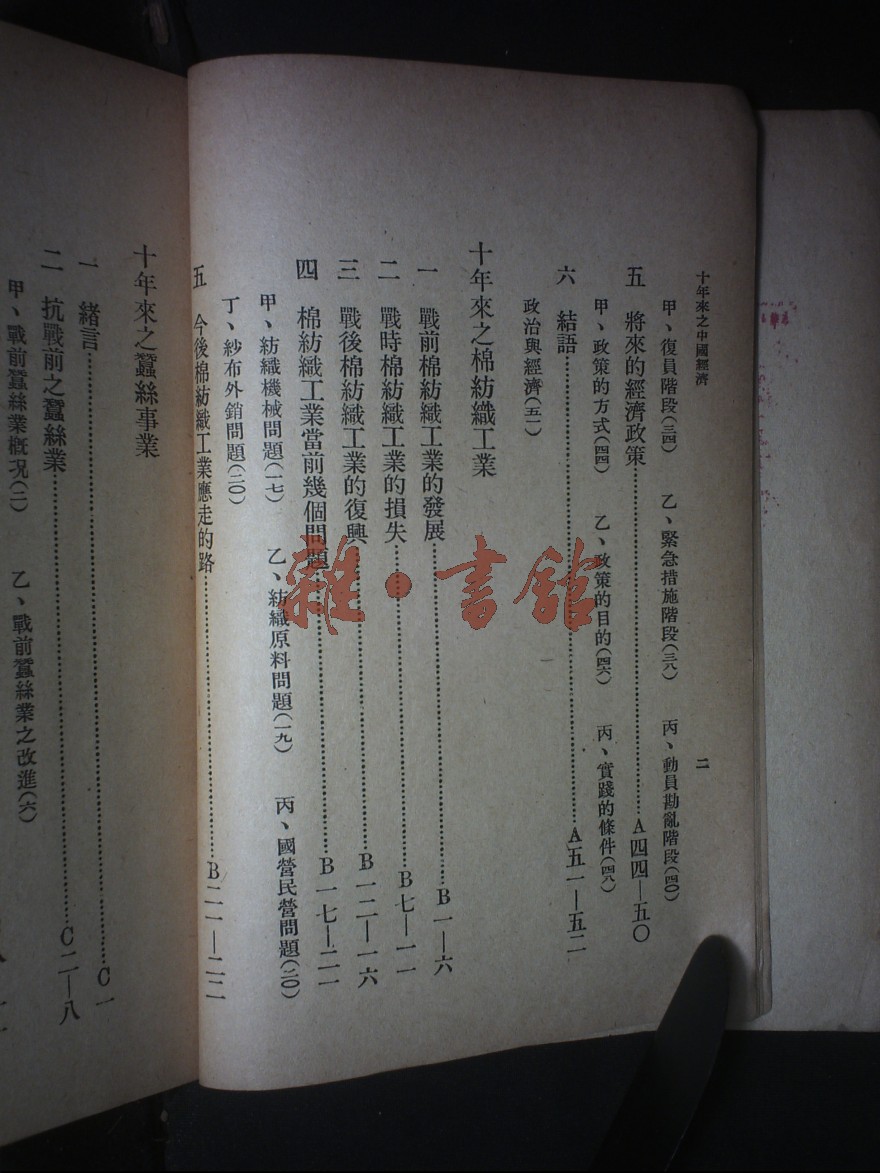 十年來之中國經濟
二
甲、復員階段(三四) 乙、緊急措施階段(三八) 丙、動員勘亂階段(四〇)
五 將來的經濟政策……A四四—五〇
甲、政策的方式(四四) 乙、政策的目的(四六) 丙、實踐的條件(四八)
六 結語……A五一—五二
政治與經濟(五一)
十年來之棉紡織工業
一 戰前棉紡織工業的發展……B一—六
二 戰時棉紡織工業的損失……B七—一一
三 戰後棉紡織工業的復興……B一二—一六
四 棉紡織工業當前幾個問題……B一七—二一
甲、紡織機械問題(一七) 乙、紡織原料問題(一九) 丙、國營民營問題(二〇)
丁、紗布外銷問題(二〇)
五 今後棉紡織工業應走的路……B二一—二二
十年來之蠶絲事業
一 緒言……C一
二 抗戰前之蠶絲業……C二—八
甲、戰前蠶絲業概況(二) 乙、戰前蠶絲業之改進(六)
雜·書館